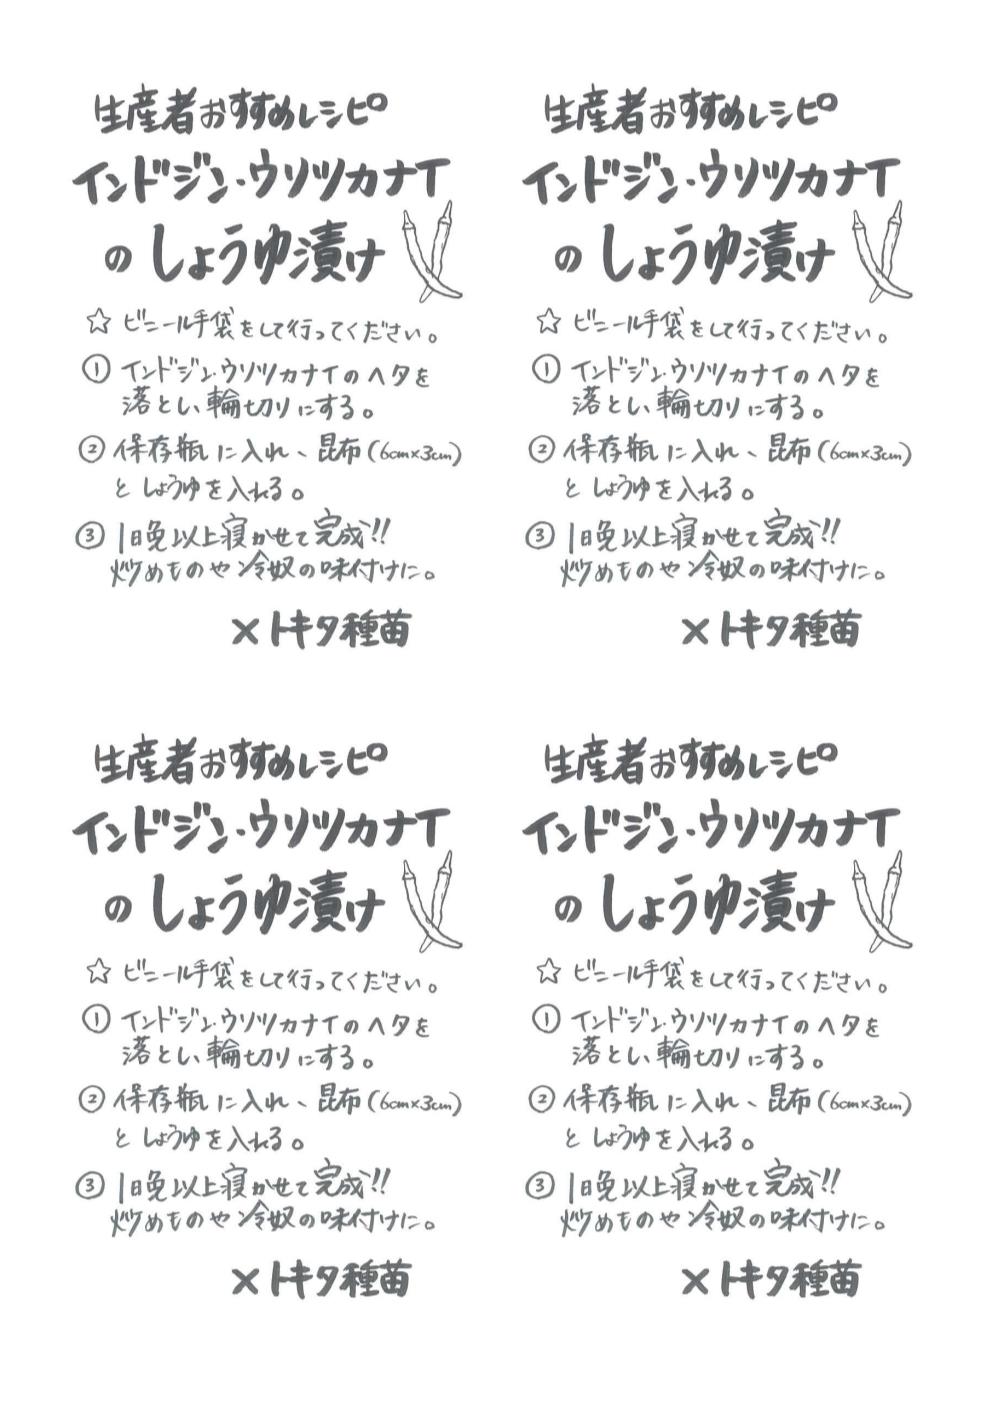 生産者おすすめレシピ
インドジン・ウソツカナイ
のしょうゆ漬け
☆ ビニール手袋をして行ってください。
① インドジン・ウソツカナイのヘタを
落とし、輪切りにする。
② 保存瓶に入れ、昆布(6cm×3cm)
としょうゆを入れる。
③ 1日晩以上寝かせて完成!!
炒めものや冷奴の味付けに。
×トキタ種苗
生産者おすすめレシピ
インドジン・ウソツカナイ
のしょうゆ漬け
☆ ビニール手袋をして行ってください。
① インドジン・ウソツカナイのヘタを
落とし、輪切りにする。
② 保存瓶に入れ、昆布(6cm×3cm)
としょうゆを入れる。
③ 1日晩以上寝かせて完成!!
炒めものや冷奴の味付けに。
×トキタ種苗
生産者おすすめレシピ
インドジン・ウソツカナイ
のしょうゆ漬け
☆ ビニール手袋をして行ってください。
① インドジン・ウソツカナイのヘタを
落とし、輪切りにする。
② 保存瓶に入れ、昆布(6cm×3cm)
としょうゆを入れる。
③ 1日晩以上寝かせて完成!!
炒めものや冷奴の味付けに。
×トキタ種苗
生産者おすすめレシピ
インドジン・ウソツカナイ
のしょうゆ漬け
☆ ビニール手袋をして行ってください。
① インドジン・ウソツカナイのヘタを
落とし、輪切りにする。
② 保存瓶に入れ、昆布(6cm×3cm)
としょうゆを入れる。
③ 1日晩以上寝かせて完成!!
炒めものや冷奴の味付けに。
×トキタ種苗